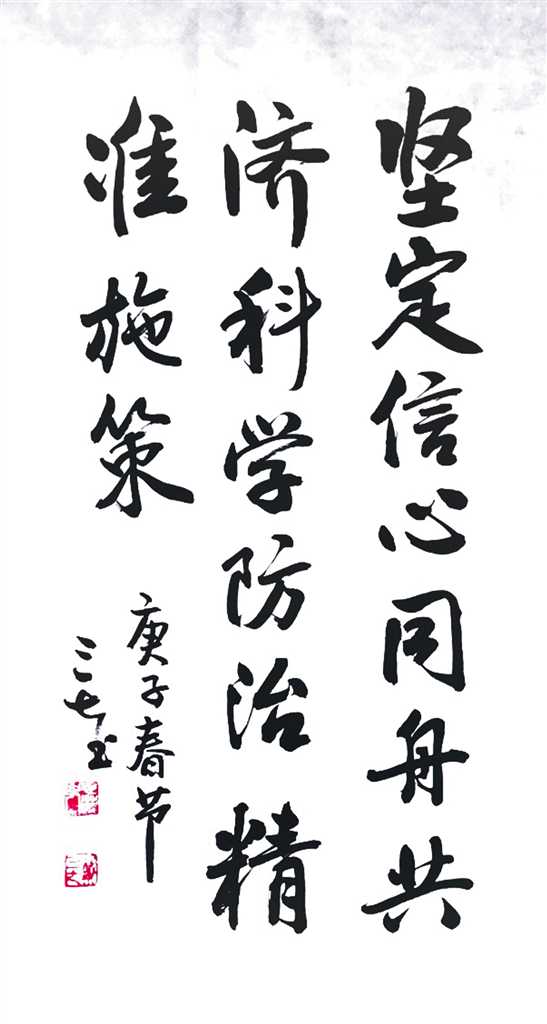 坚定信心同舟共
济科学防治精
准施策
庚子春节
三七书